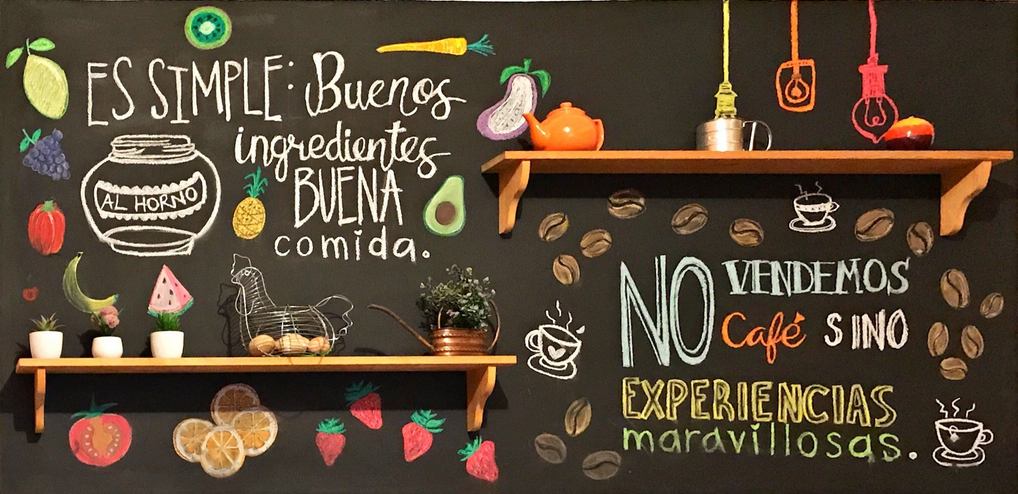 ES SIMPLE: Buenos
ingredientes
BUENA
comida.
AL HORNO
NO VENDEMOS
Café SINO
EXPERIENCIAS
maravillosas.